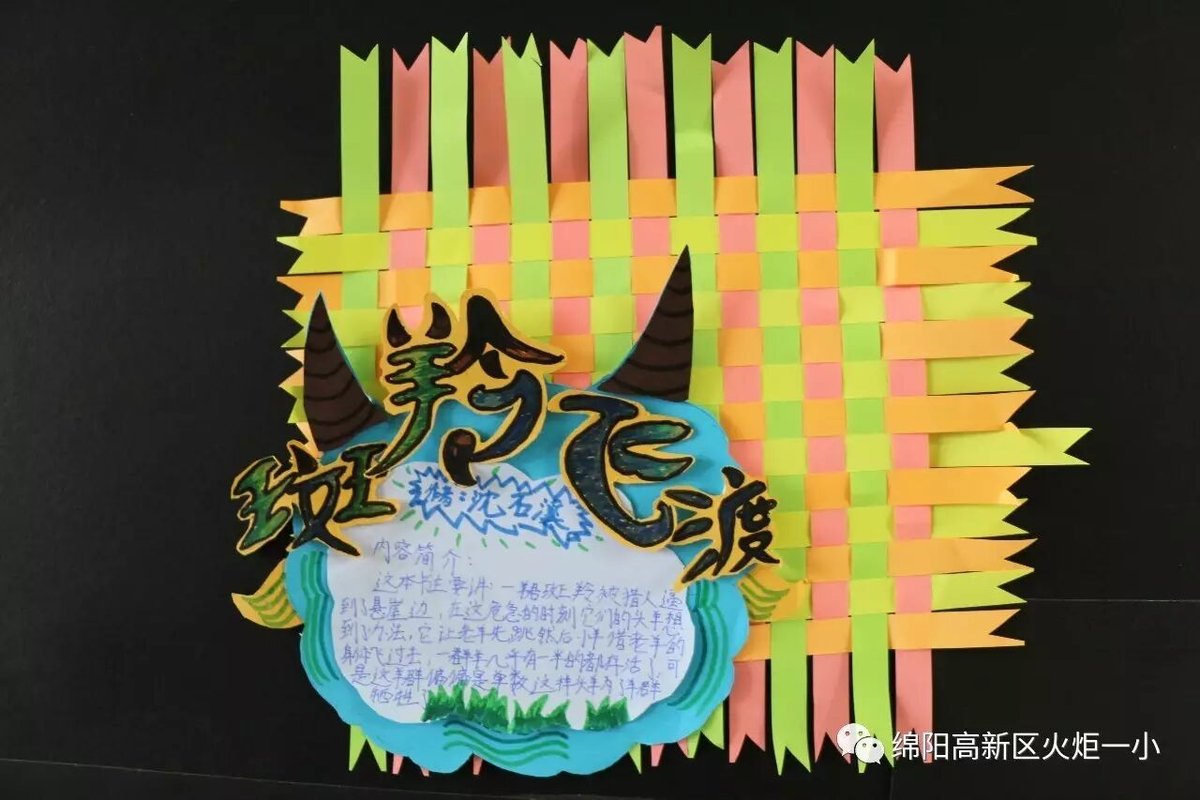 斑羚飞渡
沈石溪
内容简介：
这本书主要讲：一群斑羚被猎人逼
到了悬崖边，在这危急的时刻它们的头羊想
到了办法，它让老羊先跳然后小羊借老羊的
身体飞过去，一群羊几乎有一半的都存活了可
是这羊群偏偏是单数这样头羊为了羊群
牺牲
绵阳高新区火炬一小